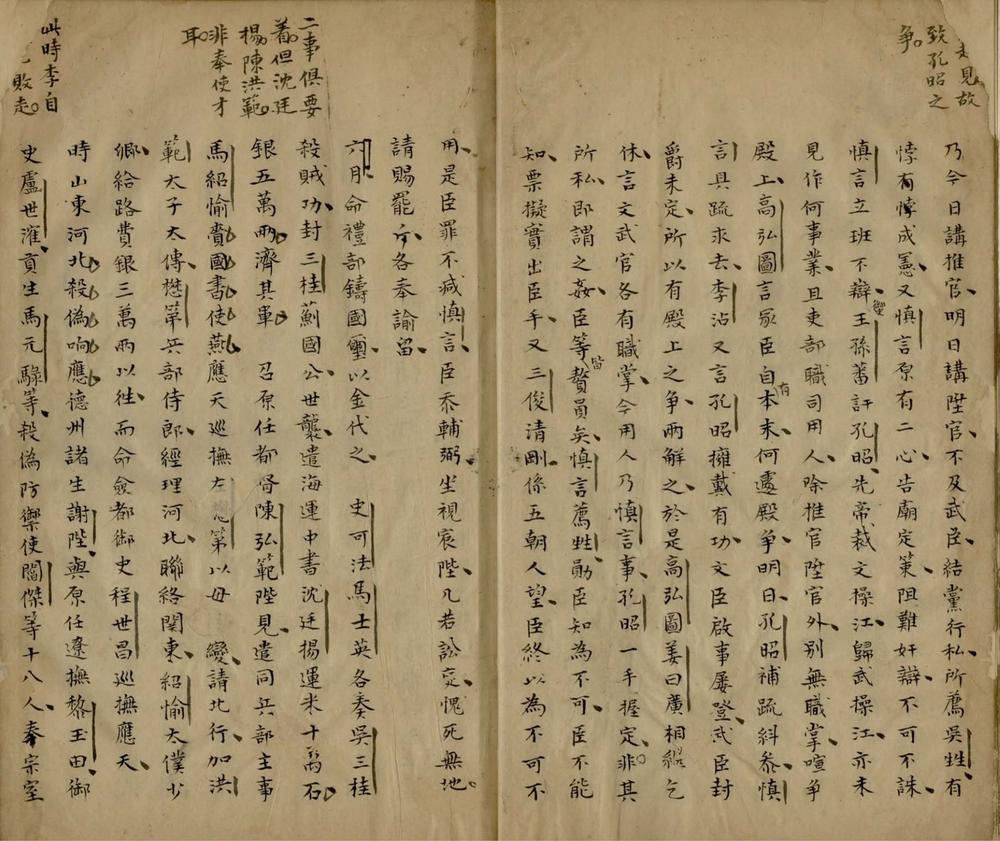 走見故
致孔昭之
争
乃今日講推官明日講陞官不及武臣結黨行私所薦吳甡有
悖有悖成憲又慎言原有二心告廟定策阻難奸辯不可不誅
慎言立班不辯王孫蕃訐孔昭先帝裁文操江歸武操江亦未
見作何事業且吏部職司用人除推官陞官外别無職掌喧争
殿上高弘圖言冢臣自有本末何遽殿争明日孔昭補疏糾叅慎
言具疏求去李沾又言孔昭擁戴有功文臣啟事屡登武臣封
爵未定所以有殿上之争兩解之於是高弘圖姜曰廣相繼乞
休言文武官各有職掌今用人乃慎言事孔昭一手握定非其
所私即謂之姦臣等皆贅員矣慎言薦甡勛臣知為不可臣不能
知票擬實出臣手又三俊清剛係五朝人望臣終以為不可不
用是臣罪不减慎言臣忝輔弼坐視宸陛几若訟㝎愧死無地
請賜罷斥各奉諭留
二事俱要
着但沈廷
楊陳洪範
非奉使才
耳
六月命禮部鑄國璽以金代之 史可法馬士英各奏吳三桂
殺賊功封三桂薊國公世襲遣海運中書沈廷揚運米十萬石
銀五萬兩濟其軍 召原任都督陳弘範陛見遣同兵部主事
馬紹愉賫國書使燕應天巡撫左懋第以母 變請北行加洪
範太子太傅懋第兵部侍郎經理河北聯絡関東紹愉太僕少
卿給路費銀三萬兩以徃而命僉都御史程世昌巡撫應天
時山東河北殺偽响應德州諸生謝陛與原任遼撫黎玉田御
史盧世㴶貢生馬元騄等殺偽防禦使閻傑等十八人奉宗室
此時李自
敗走